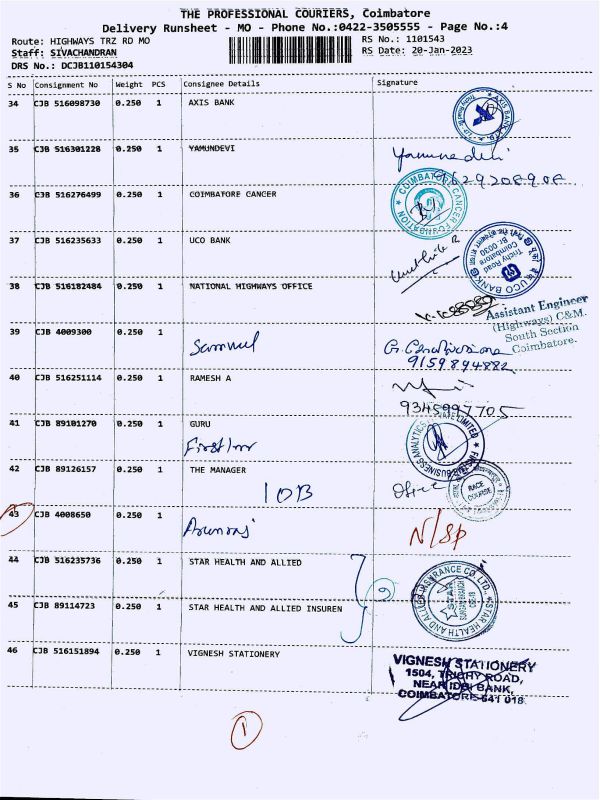 THE PROFESSIONAL COURIERS, Coimbatore
Delivery Runsheet - MO - Phone No.:0422-3505555 - Page No.:4
Route: HIGHWAYS TRZ RD MO
RS No.: 1101543
Staff: SIVACHANDRAN
RS Date: 20-Jan-2023
DRS No.: DCJB110154304
S No Consignment No Weight PCS Consignee Details Signature
34 CJB 516098730 0.250 1 AXIS BANK
AXIS BANK LTD
35 CJB 516301228 0.250 1 YAMUNDEVI
Yamunadevi
36 CJB 516276499 0.250 1 COIMBATORE CANCER
COIMBATORE CANCER FOUNDATION
37 CJB 516235633 0.250 1 UCO BANK
UCO BANK
Br. 0030
Trichy Road
Coimbatore
38 CJB 516182484 0.250 1 NATIONAL HIGHWAYS OFFICE
Assistant Engineer
(Highways) C&M.
South Section
Coimbatore.
39 CJB 4009300 0.250 1
Sammul
9159894882
40 CJB 516251114 0.250 1 RAMESH A
9345997705
41 CJB 89101270 0.250 1 GURU
BUSINESS ANALYTICS LIMITED
42 CJB 89126157 0.250 1 THE MANAGER
IOB
Office
RACE COURSE
43 CJB 4008650 0.250 1
Arunraj
N/SP
44 CJB 516235736 0.250 1 STAR HEALTH AND ALLIED
45 CJB 89114723 0.250 1 STAR HEALTH AND ALLIED INSUREN
2
STAR HEALTH AND ALLIED INSURANCE CO. LTD.,
46 CJB 516151894 0.250 1 VIGNESH STATIONERY
VIGNESH STATIONERY
1504, TRICHY ROAD,
NEAR IDBI BANK,
COIMBATORE-641 018
1